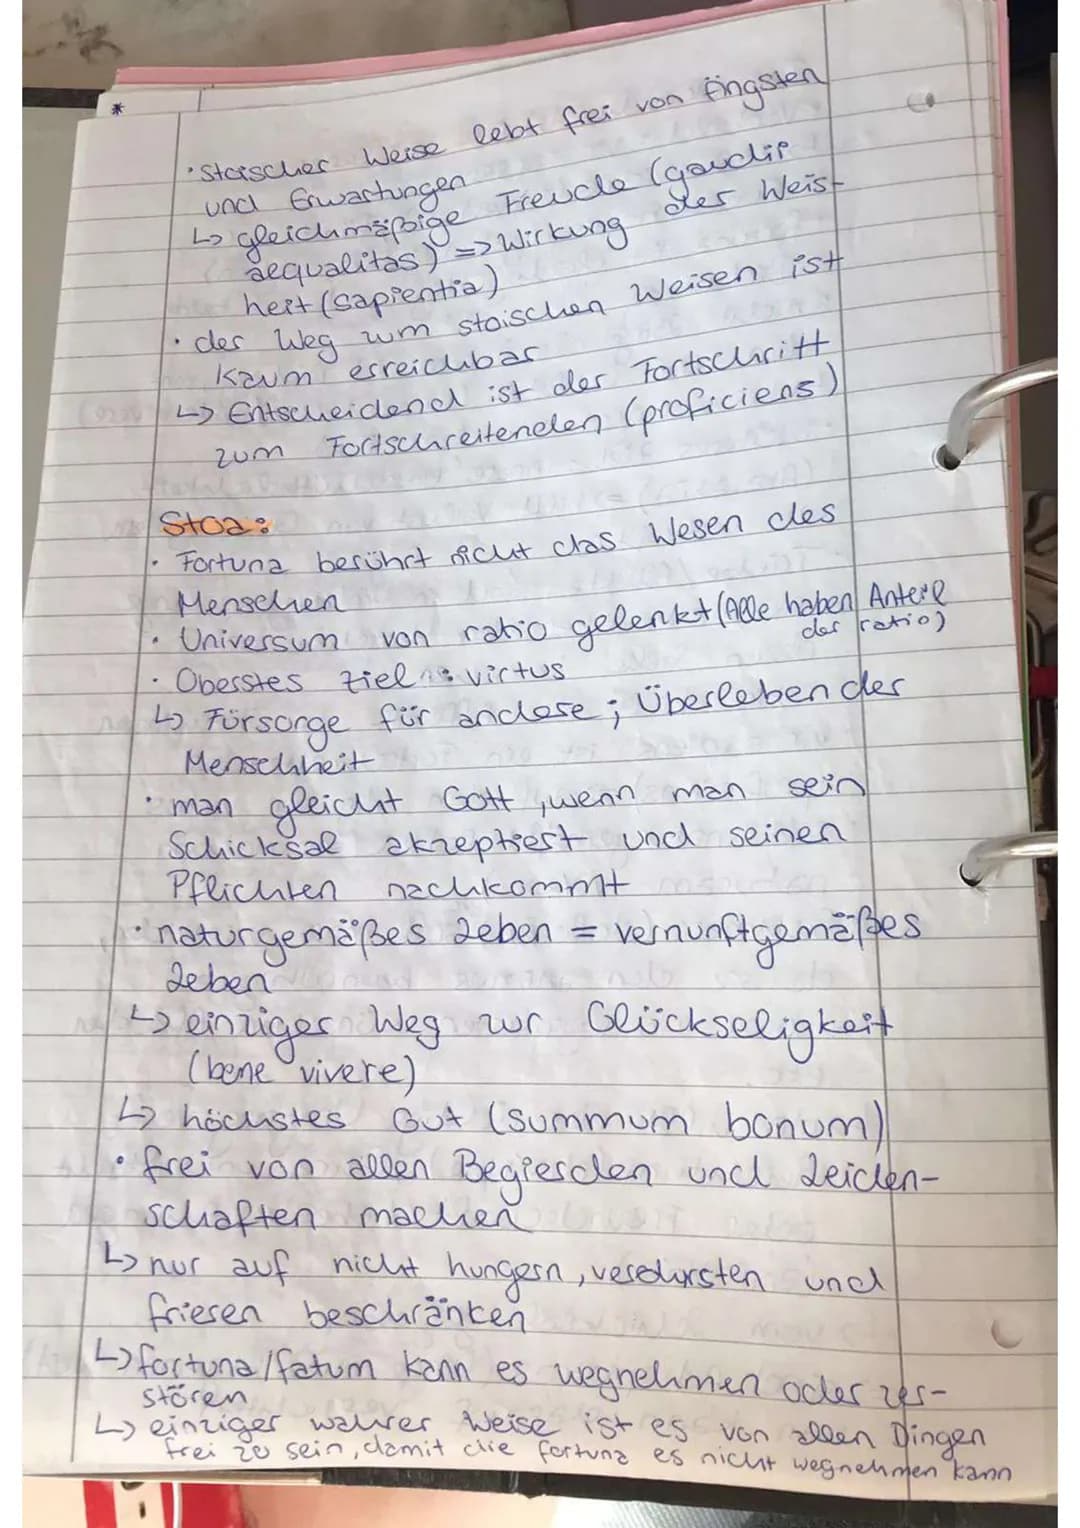 *
• Stoischer Weise lebt frei von Ängsten
und Erwartungen
↳ gleichmäßige Freude (gaudii
aequalitas) => Wirkung der Weis-
heit (sapientia)
• der Weg zum stoischen Weisen ist
kaum erreichbar
↳ Entscheidend ist der Fortschritt
zum Fortschreitenden (proficiens)
Stoa:
• Fortuna berührt nicht das Wesen des
Menschen
• Universum von ratio gelenkt (Alle haben Anteil
der ratio)
• Oberstes Ziel: virtus
↳ Fürsorge für andere; Überleben der
Menschheit
• man gleicht Gott, wenn man sein
Schicksal akzeptiert und seinen
Pflichten nachkommt
• naturgemäßes Leben = vernunftgemäßes
Leben
↳ einziger Weg zur Glückseligkeit
(bene vivere)
↳ höchstes Gut (summum bonum)
• frei von allen Begierden und Leiden-
schaften machen
↳ nur auf nicht hungern, verdursten und
frieren beschränken
↳ fortuna/fatum kann es wegnehmen oder zer-
stören
↳ einziger wahrer Weise ist es von allen Dingen
frei zu sein, damit die fortuna es nicht wegnehmen kann